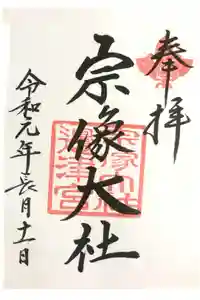 奉拝
宗像大社
令和元年長月十一日
宗像大社
邊津宮